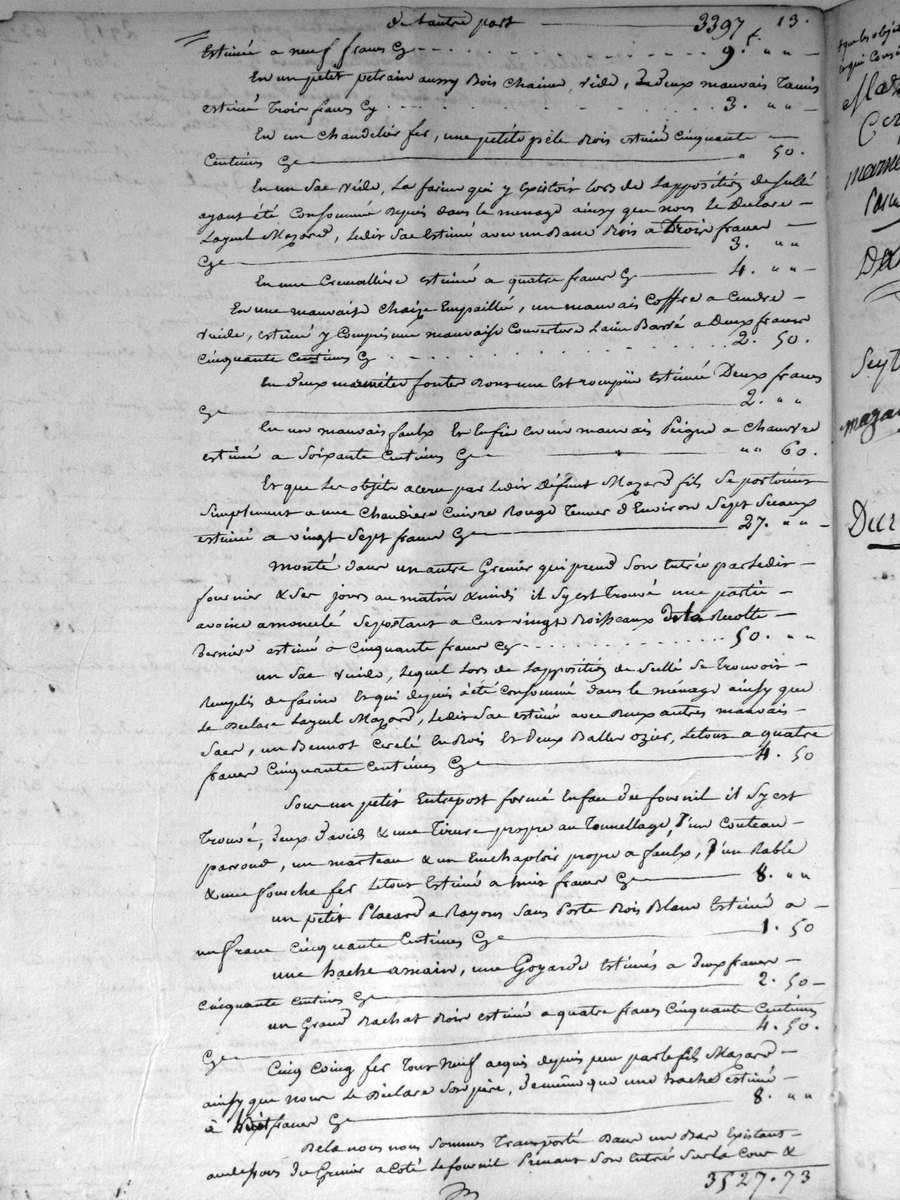 de l'autre part 3397 f. 13.
Estimée a neuf francs Cy 9. " "
En un petit petrain aussy Bois chaine, vide, & deux mauvais Tamis
estimé Trois francs Cy 3. " "
En un Chandelier fer, une petite pèle Bois estimé Cinquante
Centimes Cy " 50.
En un Sac vide, La farine qui y Existoit lors de L'apposition de sellé
ayant été Consommée depuis dans le menage ainsy que nous le Declare
Layeul Mazard, ledit Sac Estimé avec un Banc Bois a Trois francs
Cy 3. " "
En une Cremallière estimé a quatre francs Cy 4. " "
En une mauvaise chaize Empaillé, un mauvais Coffre a Cendre
vuide, estimé y Compris une mauvaise Couverture Laine Barré a Deux francs
Cinquante Centimes Cy 2. 50.
En deux marmites fontes dont une est rompüe estimée Deux francs
Cy 2. " "
En un mauvais faulx Et Enfin en un mauvais Peigne a Chanvre
estimé a Soixante Centimes Cy " " 60.
Et que Les objets acrus par ledit Défunt Mazard fils se portoient
Simplement a une Chaudiere Cuivre Rouge Tenant d'Environ Sept Sceaux
estimée a vingt Sept francs Cy 27. " "
Monté dans un autre Grenier qui prend Son Entrée par ledit
fournier & ses jours au matin & midi il S'y est Trouvé une partie
avoine amoncelé Se portant a Cent vingt Boisseaux de la Recolte
derniere estimé a Cinquante francs Cy 50. " "
un Sac vuide, Lequel Lors de L'apposition de Sellé se Trouvoit
Remplis de farine Et qui depuis a été Consommé dans le ménage ainsy que
le Declare Layeul Mazard, ledit Sac estimé avec deux autres mauvais
Sacs, un Bennot Cerclé En Bois Et deux Balles ozier, le tout a quatre
francs Cinquante Centimes Cy 4. 50
Sous un petit Entrepost formé En face du fournil il S'y est
Trouvé, deux davids & une Tirure propre au Tonnellage, d'un Couteau
parroud, un marteau & un Enchaploir propre a faulx, d'un Rable
& une fourche fer le tout Estimé a huit francs Cy 8. " "
un petit Placard a Rayons Sans Porte Bois Blanc Estimé a
un franc Cinquante Centimes Cy 1. 50
une hache a main, une Goyarde estimés a deux francs
Cinquante Centimes Cy 2. 50
un Grand Bachat Bois estimé a quatre francs Cinquante Centimes
Cy 4. 50.
Cinq Coing fer Tout Neuf acquis depuis peu par le fils Mazard
ainsy que nous le Declare Son père, de même que une hache estimé
à huit francs Cy 8. " "
De la nous nous Sommes Transporté Dans un Bas Existant
au dessous du Grenier a Coté le fournil Prenant Son Entrée Sur la Cour &
3527. 73